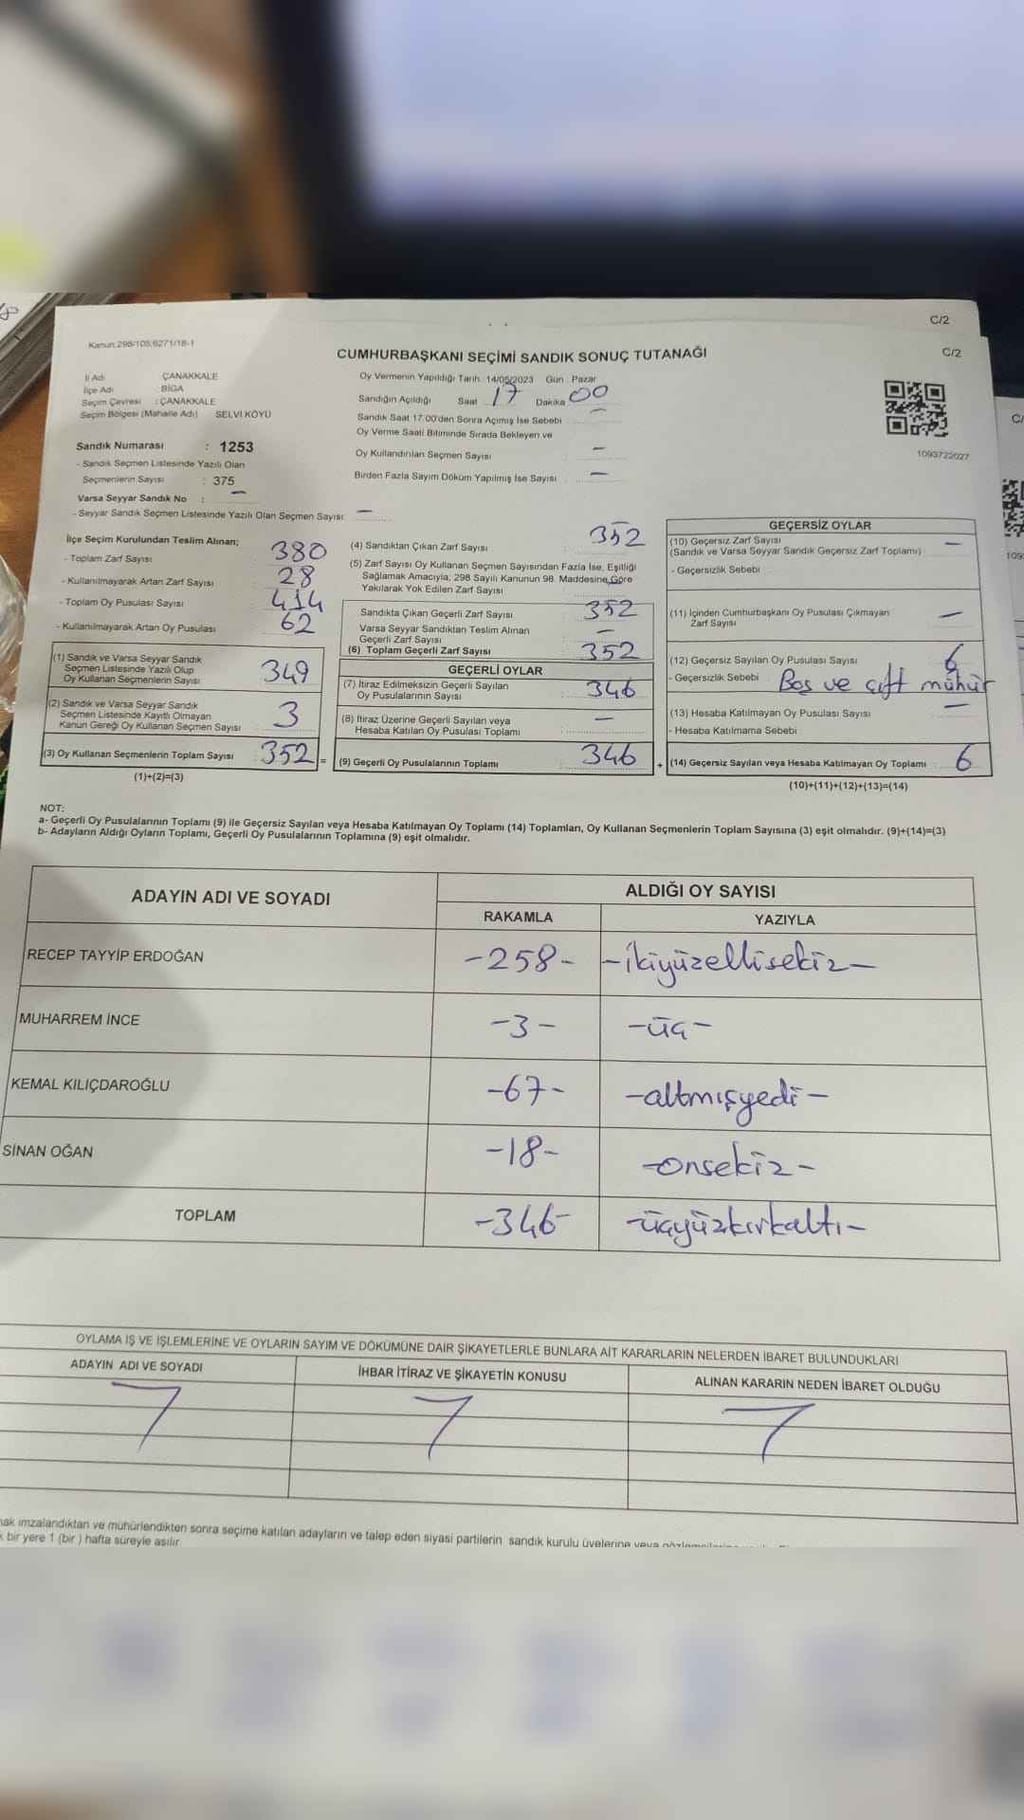 C/2
C/2
Kanun:298/105;6271/18-1
CUMHURBAŞKANI SEÇİMİ SANDIK SONUÇ TUTANAĞI
İl Adı ÇANAKKALE
İlçe Adı : BİGA
Seçim Çevresi : ÇANAKKALE
Seçim Bölgesi (Mahalle Adı) SELVİ KÖYÜ
Sandık Numarası : 1253
- Sandık Seçmen Listesinde Yazılı Olan
Seçmenlerin Sayısı : 375
Varsa Seyyar Sandık No : -
- Seyyar Sandık Seçmen Listesinde Yazılı Olan Seçmen Sayısı: -
Oy Vermenin Yapıldığı Tarih: 14/05/2023 Gün: Pazar
Sandığın Açıldığı Saat 17 Dakika 00
Sandık Saat 17:00'den Sonra Açılmış İse Sebebi -
Oy Verme Saati Bitiminde Sırada Bekleyen ve
Oy Kullandırılan Seçmen Sayısı -
Birden Fazla Sayım Döküm Yapılmış İse Sayısı -
1093722027
İlçe Seçim Kurulundan Teslim Alınan;
- Toplam Zarf Sayısı 380
- Kullanılmayarak Artan Zarf Sayısı 28
- Toplam Oy Pusulası Sayısı 414
- Kullanılmayarak Artan Oy Pusulası 62
(1) Sandık ve Varsa Seyyar Sandık
Seçmen Listesinde Yazılı Olup
Oy Kullanan Seçmenlerin Sayısı 349
(2) Sandık ve Varsa Seyyar Sandık
Seçmen Listesinde Kayıtlı Olmayan
Kanun Gereği Oy Kullanan Seçmen Sayısı 3
(3) Oy Kullanan Seçmenlerin Toplam Sayısı 352 =
(1)+(2)=(3)
(4) Sandıktan Çıkan Zarf Sayısı 352
(5) Zarf Sayısı Oy Kullanan Seçmen Sayısından Fazla İse, Eşitliği
Sağlamak Amacıyla, 298 Sayılı Kanunun 98. Maddesine Göre
Yakılarak Yok Edilen Zarf Sayısı
Sandıkta Çıkan Geçerli Zarf Sayısı 352
Varsa Seyyar Sandıktan Teslim Alınan
Geçerli Zarf Sayısı -
(6) Toplam Geçerli Zarf Sayısı 352
GEÇERLİ OYLAR
(7) İtiraz Edilmeksizin Geçerli Sayılan
Oy Pusulalarının Sayısı 346
(8) İtiraz Üzerine Geçerli Sayılan veya
Hesaba Katılan Oy Pusulası Toplamı -
(9) Geçerli Oy Pusulalarının Toplamı 346 +
GEÇERSİZ OYLAR
(10) Geçersiz Zarf Sayısı -
(Sandık ve Varsa Seyyar Sandık Geçersiz Zarf Toplamı)
- Geçersizlik Sebebi
(11) İçinden Cumhurbaşkanı Oy Pusulası Çıkmayan
Zarf Sayısı -
(12) Geçersiz Sayılan Oy Pusulası Sayısı 6
- Geçersizlik Sebebi Boş ve çift mühür
(13) Hesaba Katılmayan Oy Pusulası Sayısı -
- Hesaba Katılmama Sebebi
(14) Geçersiz Sayılan veya Hesaba Katılmayan Oy Toplamı 6
(10)+(11)+(12)+(13)=(14)
NOT:
a- Geçerli Oy Pusulalarının Toplamı (9) ile Geçersiz Sayılan veya Hesaba Katılmayan Oy Toplamı (14) Toplamları, Oy Kullanan Seçmenlerin Toplam Sayısına (3) eşit olmalıdır. (9)+(14)=(3)
b- Adayların Aldığı Oyların Toplamı, Geçerli Oy Pusulalarının Toplamına (9) eşit olmalıdır.
ADAYIN ADI VE SOYADI
ALDIĞI OY SAYISI
RAKAMLA YAZIYLA
RECEP TAYYİP ERDOĞAN -258- -ikiyüzellisekiz-
MUHARREM İNCE -3- -üç-
KEMAL KILIÇDAROĞLU -67- -altmışyedi-
SİNAN OĞAN -18- -onsekiz-
TOPLAM -346- -üçyüzkırkaltı-
OYLAMA İŞ VE İŞLEMLERİNE VE OYLARIN SAYIM VE DÖKÜMÜNE DAİR ŞİKAYETLERLE BUNLARA AİT KARARLARIN NELERDEN İBARET BULUNDUKLARI
ADAYIN ADI VE SOYADI İHBAR İTİRAZ VE ŞİKAYETİN KONUSU ALINAN KARARIN NEDEN İBARET OLDUĞU
imzalandıktan ve mühürlendikten sonra seçime katılan adayların ve talep eden siyasi partilerin sandık kurulu üyelerine veya
bir yere 1 (bir) hafta süreyle asılır.